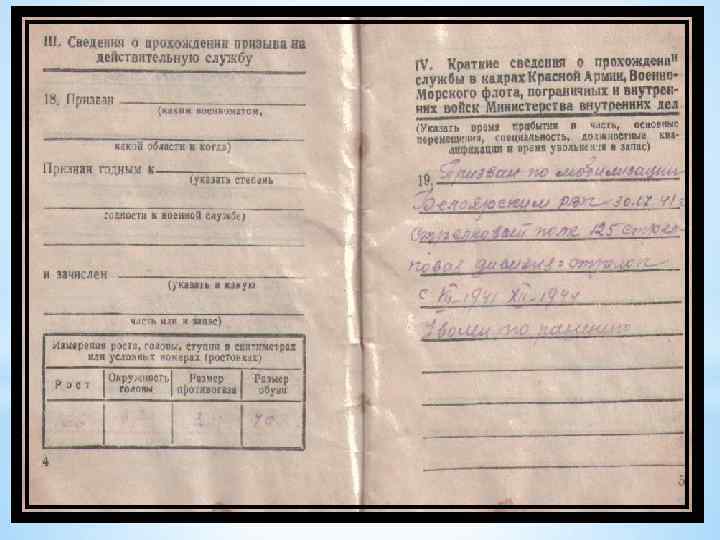 III. Сведения о прохождении призыва на
действительную службу
18. Призван
(каким военкоматом,
какой области и когда)
Признан годным к
(указать степень
годности к военной службе)
и зачислен
(указать в какую
часть или в запас)
Измерения роста, головы, ступни в сантиметрах
или условных номерах (ростовках)
Рост
Окружность
головы
Размер
противогаза
Размер
обуви
40
4
IV. Краткие сведения о прохождении
службы в кадрах Красной Армии, Военно-
Морского флота, пограничных и внутрен-
них войск Министерства внутренних дел
(Указать время прибытия в часть, основные
перемещения, специальность, должностные ква-
лификации и время увольнения в запас)
19. Призван по мобилизации
Белоярским рвк
Стрелковый полк 125 стрел-
ковая дивизия
с 1941 XII-1941
Уволен по ранению
5